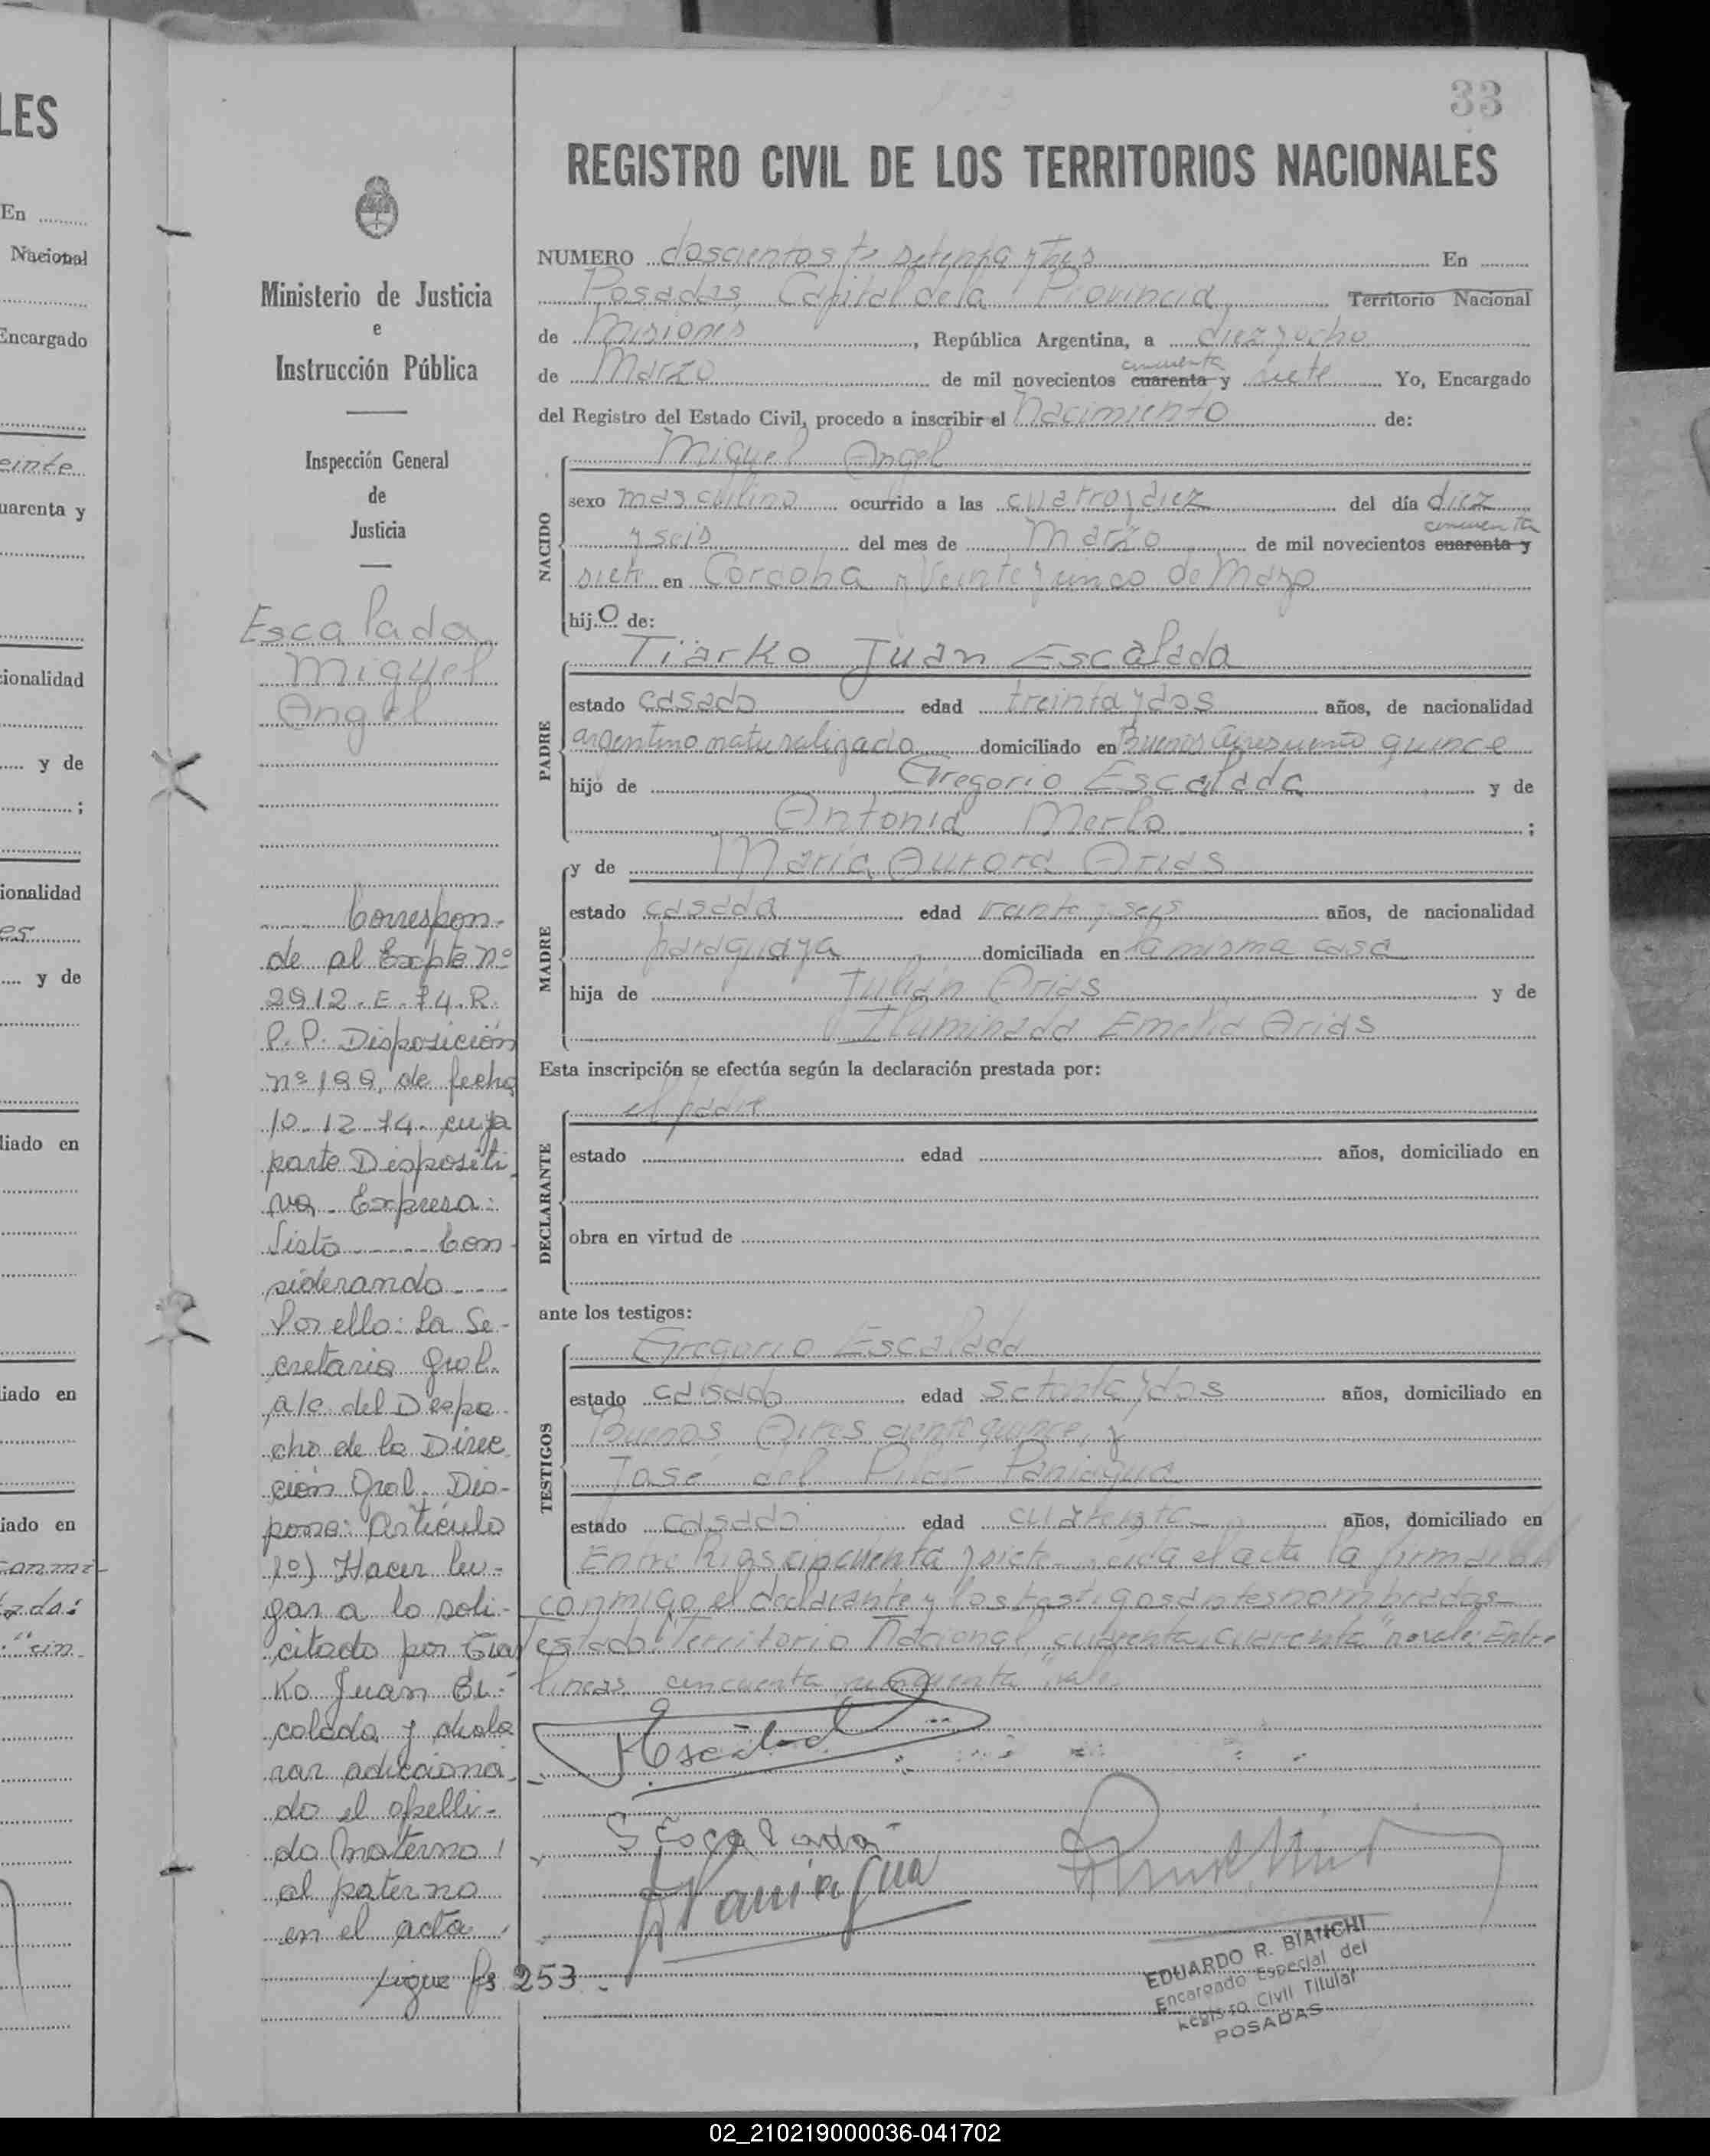 LES
En
Nacional
Encargado
einte
uarenta y
ionalidad
y de
;
ionalidad
es
y de
liado en
iado en
iado en
conmi-
33
REGISTRO CIVIL DE LOS TERRITORIOS NACIONALES
Ministerio de Justicia
e
Instrucción Pública
Inspección General
de
Justicia
Escalada
Miguel
Angel
Correspon-
de al Expte nº
2912-E-74-R.
P.P. Disposición
nº 199, de fecha
10-12-74 cuya
parte Dispositi
va Expresa:
Visto Con
siderando
Por ello: La Se-
cretaria Gral.
a/c del Despa-
cho de la Direc
ción Gral. Dis-
pone: Artículo
1º) Hacer lu-
gar a lo soli-
citado por Tiar
Ko Juan Es-
calada y decla
rar adiciona-
do el apelli-
do materno
al paterno
en el acta
sigue fs 253
NUMERO doscientos setenta y tres En
Posadas, Capital de la Provincia Territorio Nacional
de Misiones, República Argentina, a diez y ocho
cincuenta
de Marzo de mil novecientos cuarenta y siete Yo, Encargado
del Registro del Estado Civil, procedo a inscribir el Nacimiento de:
NACIDO
Miguel Angel
sexo masculino ocurrido a las cuatro y diez del día diez
cincuenta
y seis del mes de Marzo de mil novecientos cuarenta y
siete en Cordoba y Veinte y cinco de Mayo
hijo de:
PADRE
Tiarko Juan Escalada
estado casado edad treinta y dos años, de nacionalidad
argentino naturalizado domiciliado en Buenos Aires ciento quince
hijo de Gregorio Escalada y de
Antonia Merlo ;
MADRE
y de María Aurora Arias
estado casada edad veinte y seis años, de nacionalidad
paraguaya domiciliada en la misma casa
hija de Julián Arias y de
Iluminada Emelia Arias
Esta inscripción se efectúa según la declaración prestada por:
DECLARANTE
el padre
estado edad años, domiciliado en
obra en virtud de
ante los testigos:
TESTIGOS
Gregorio Escalada
estado casado edad setenta y dos años, domiciliado en
Buenos Aires ciento quince, y
José del Pilar Paniagua
estado casado edad cuarenta años, domiciliado en
Entre Rios cincuenta y siete leida el acta la firman
conmigo el declarante y los testigos antes nombrados
Testado "Territorio Nacional, cuarenta, cuarenta" no vale: Entre
lineas cincuenta, cincuenta, vale.
Escalada
Escalada
Paniagua
EDUARDO R. BIANCHI
Encargado Especial del
Registro Civil Titular
POSADAS
02_210219000036-041702